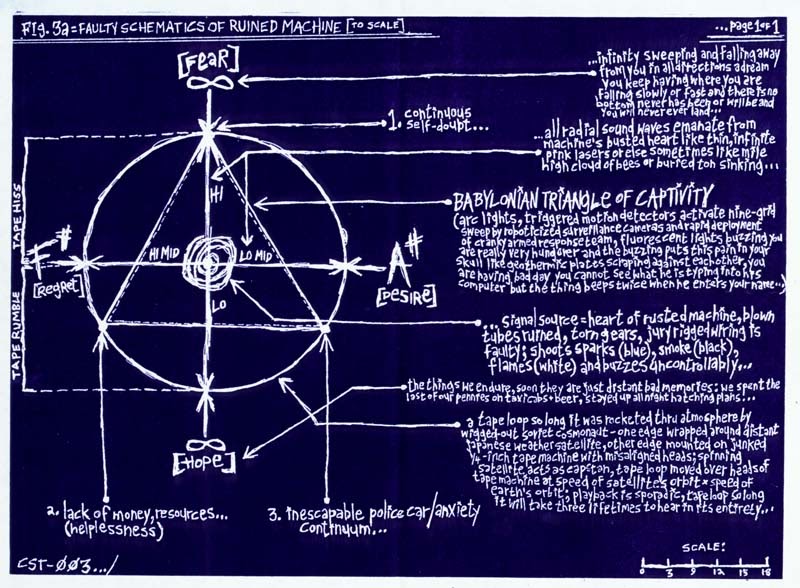 Fig. 3a = FAULTY SCHEMATICS OF RUINED MACHINE [TO SCALE]
...page 1 of 1
[FEAR]
∞
...infinity sweeping and falling away
from you in all directions a dream
you keep having where you are
falling slowly or fast and there is no
bottom never has been or will be and
you will never ever land...
1. continuous
self-doubt...
...all radial sound waves emanate from
machine's busted heart like thin, infinite
pink lasers or else sometimes like mile
high cloud of bees or buried ton sinking...
HI
BABYLONIAN TRIANGLE OF CAPTIVITY
(arc lights, triggered motion detectors activate nine-grid
sweep by roboticized surveillance cameras and rapid deployment
of cranky armed response team, fluorescent lights buzzing you
are really very hungover and the buzzing puts this pain in your
skull like geothermic plates scraping against each other, you
are having bad day you cannot see what he is typing into his
computer but the thing beeps twice when he enters your name...)
TAPE HISS
HI MID
LO MID
F#
[REGRET]
A#
[DESIRE]
LO
TAPE RUMBLE
...signal source = heart of rusted machine, blown
tubes ruined, torn gears, jury rigged wiring is
faulty; shoots sparks (blue), smoke (black),
flames (white) and buzzes uncontrollably...
the things we endure, soon they are just distant bad memories: we spent the
last of our pennies on taxicabs + beer, stayed up all night hatching plans!...
∞
[HOPE]
a tape loop so long it was rocketed thru atmosphere by
wigged-out soviet cosmonaut - one edge wrapped around distant
japanese weather satellite, other edge mounted on junked
1/4-inch tape machine with misaligned heads; spinning
satellite acts as capstan, tape loop moved over heads of
tape machine at speed of satellite's orbit × speed of
earth's orbit; playback is sporadic, tape loop so long
it will take three lifetimes to hear in its entirety...
2. lack of money, resources...
(helplessness)
3. inescapable police car/anxiety
continuum...
CST-003.../
SCALE:
0 3 9 12 15 18